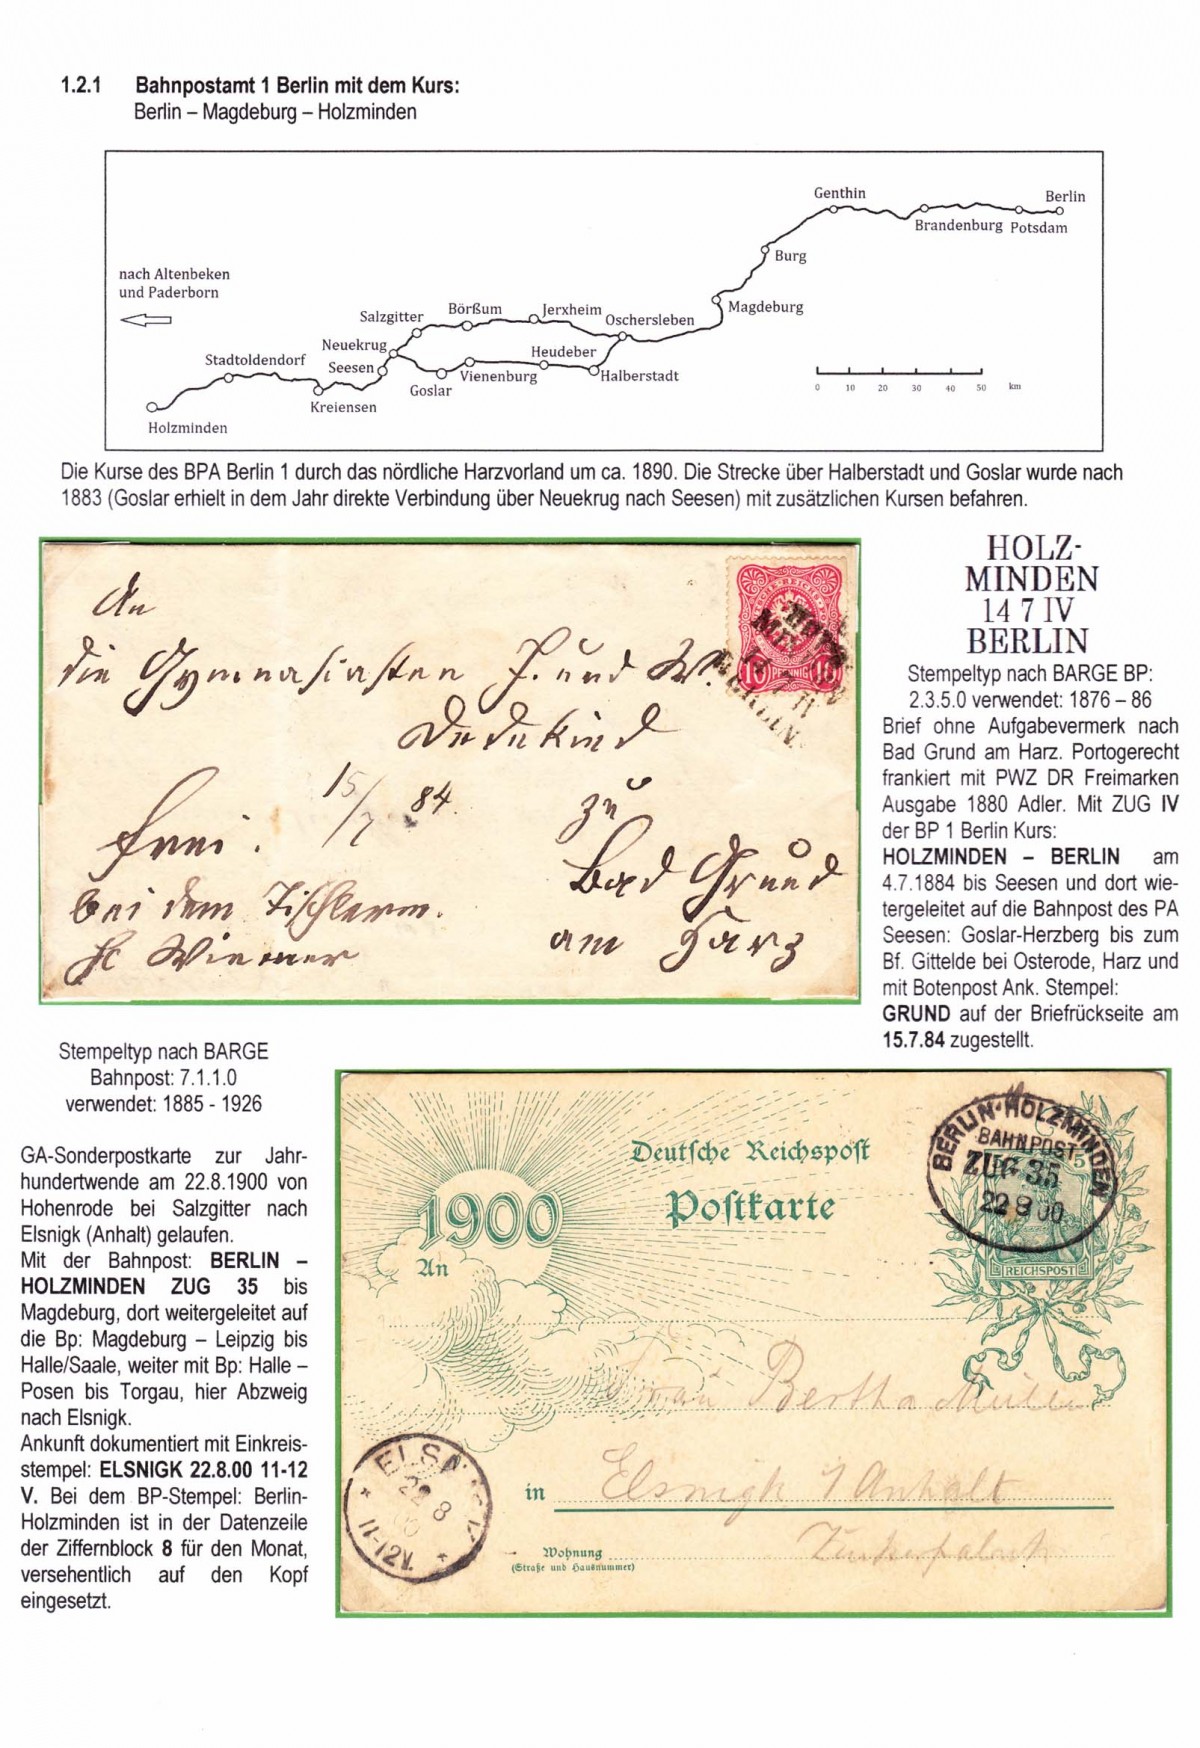 1.2.1 Bahnpostamt 1 Berlin mit dem Kurs:
Berlin – Magdeburg – Holzminden
Genthin
Berlin
Brandenburg Potsdam
Burg
nach Altenbeken
und Paderborn
Magdeburg
Salzgitter
Börßum
Jerxheim
Oschersleben
Neuekrug
Stadtoldendorf
Seesen
Heudeber
Goslar
Vienenburg
Halberstadt
Kreiensen
Holzminden
0 10 20 30 40 50 km
Die Kurse des BPA Berlin 1 durch das nördliche Harzvorland um ca. 1890. Die Strecke über Halberstadt und Goslar wurde nach
1883 (Goslar erhielt in dem Jahr direkte Verbindung über Neuekrug nach Seesen) mit zusätzlichen Kursen befahren.
An
die Gymnasiasten F. und W.
Dedekind
15/7 84.
zu
frei.
Bad Grund
bei dem Tischlerm.
am Harz
Wiemer
10 PFENNIG 10
HOLZ-
MINDEN
14 7 IV
BERLIN
Stempeltyp nach BARGE BP:
2.3.5.0 verwendet: 1876 – 86
Brief ohne Aufgabevermerk nach
Bad Grund am Harz. Portogerecht
frankiert mit PWZ DR Freimarken
Ausgabe 1880 Adler. Mit ZUG IV
der BP 1 Berlin Kurs:
HOLZMINDEN – BERLIN am
4.7.1884 bis Seesen und dort wie-
tergeleitet auf die Bahnpost des PA
Seesen: Goslar-Herzberg bis zum
Bf. Gittelde bei Osterode, Harz und
mit Botenpost Ank. Stempel:
GRUND auf der Briefrückseite am
15.7.84 zugestellt.
Stempeltyp nach BARGE
Bahnpost: 7.1.1.0
verwendet: 1885 - 1926
GA-Sonderpostkarte zur Jahr-
hundertwende am 22.8.1900 von
Hohenrode bei Salzgitter nach
Elsnigk (Anhalt) gelaufen.
Mit der Bahnpost: BERLIN –
HOLZMINDEN ZUG 35 bis
Magdeburg, dort weitergeleitet auf
die Bp: Magdeburg – Leipzig bis
Halle/Saale, weiter mit Bp: Halle –
Posen bis Torgau, hier Abzweig
nach Elsnigk.
Ankunft dokumentiert mit Einkreis-
stempel: ELSNIGK 22.8.00 11-12
V. Bei dem BP-Stempel: Berlin-
Holzminden ist in der Datenzeile
der Ziffernblock 8 für den Monat,
versehentlich auf den Kopf
eingesetzt.
Deutsche Reichspost
Postkarte
1900
An
BERLIN-HOLZMINDEN
BAHNPOST
ZUG 35
22 8 00
5
REICHSPOST
Frau Bertha Müller
in Elsnigk i/Anhalt
Wohnung
(Straße und Hausnummer)
Zuckerfabrik
22 8
11-12V.